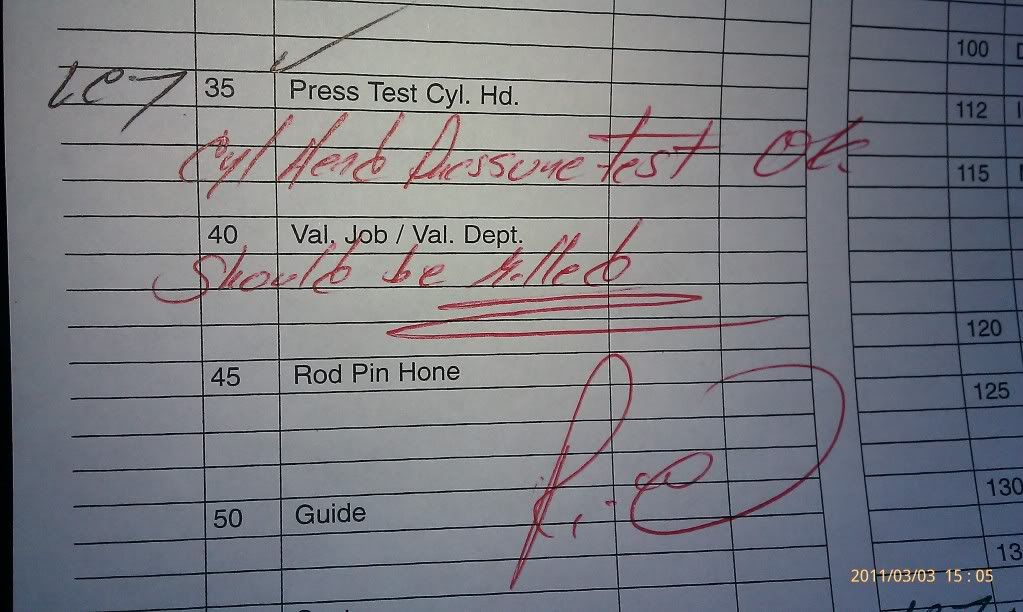 100
35 Press Test Cyl. Hd.
112
Cyl Head Pressure Test Ok.
115
40 Val. Job / Val. Dept.
Should be Milled
120
45 Rod Pin Hone
125
130
50 Guide
13
2011/03/03 15:05